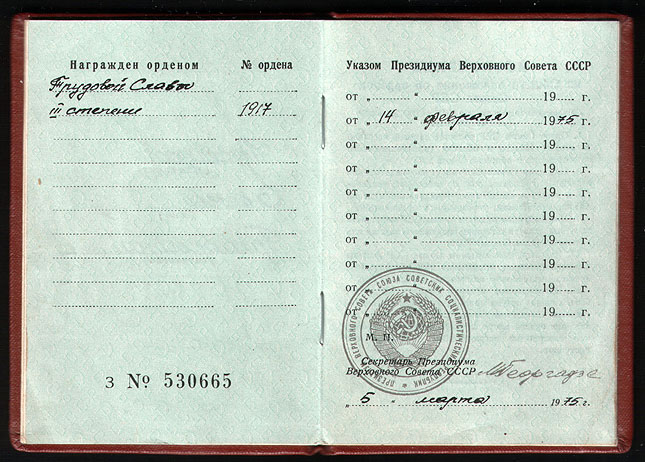 Награжден орденом
№ ордена
Трудовой Славы
III степени
1917
З № 530665
Указом Президиума Верховного Совета СССР
от „ “ 19 г.
от „ 14 “ февраля 1975 г.
от „ “ 19 г.
от „ “ 19 г.
от „ “ 19 г.
от „ “ 19 г.
от „ “ 19 г.
от „ “ 19 г.
от „ “ 19 г.
от „ “ 19 г.
ПРЕЗИДИУМ ВЕРХОВНОГО СОВЕТА СОЮЗА СОВЕТСКИХ СОЦИАЛИСТИЧЕСКИХ РЕСПУБЛИК
М. П.
Секретарь Президиума
Верховного Совета СССР
М Георгадзе
„ 5 “ марта 1975 г.